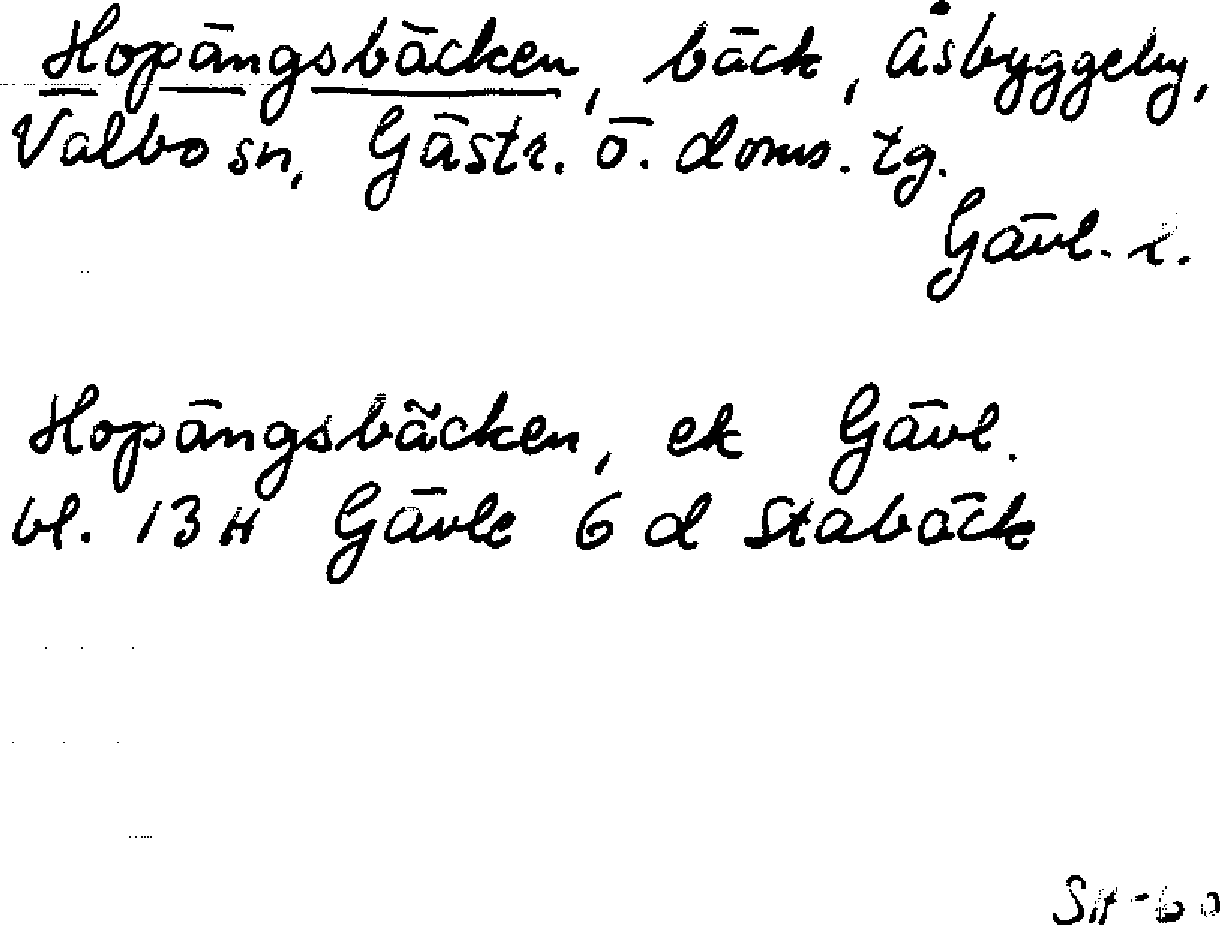 Hopängsbäcken, bäck, Åsbyggeby,
Valbo sn, Gästr. ö. doms. tg.
Gävl. l.
Hopängsbäcken, ek Gävl.
bl. 13 H Gävle 6 d Stabäck